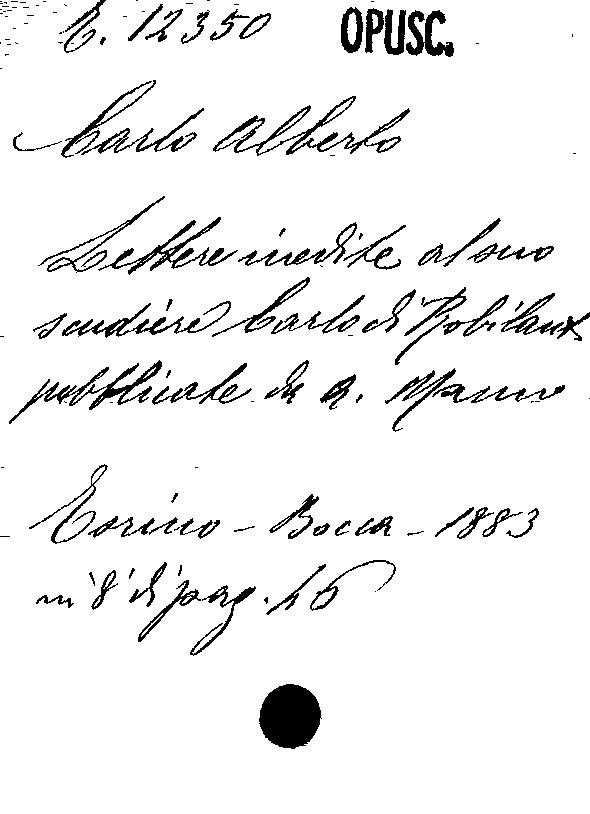 E. 12350 OPUSC.
Carlo Alberto
Lettere inedite al suo
scudiere Carlo di Robilant
pubblicate da A. Manno
Torino - Bocca - 1883
in 8° di pag. 46